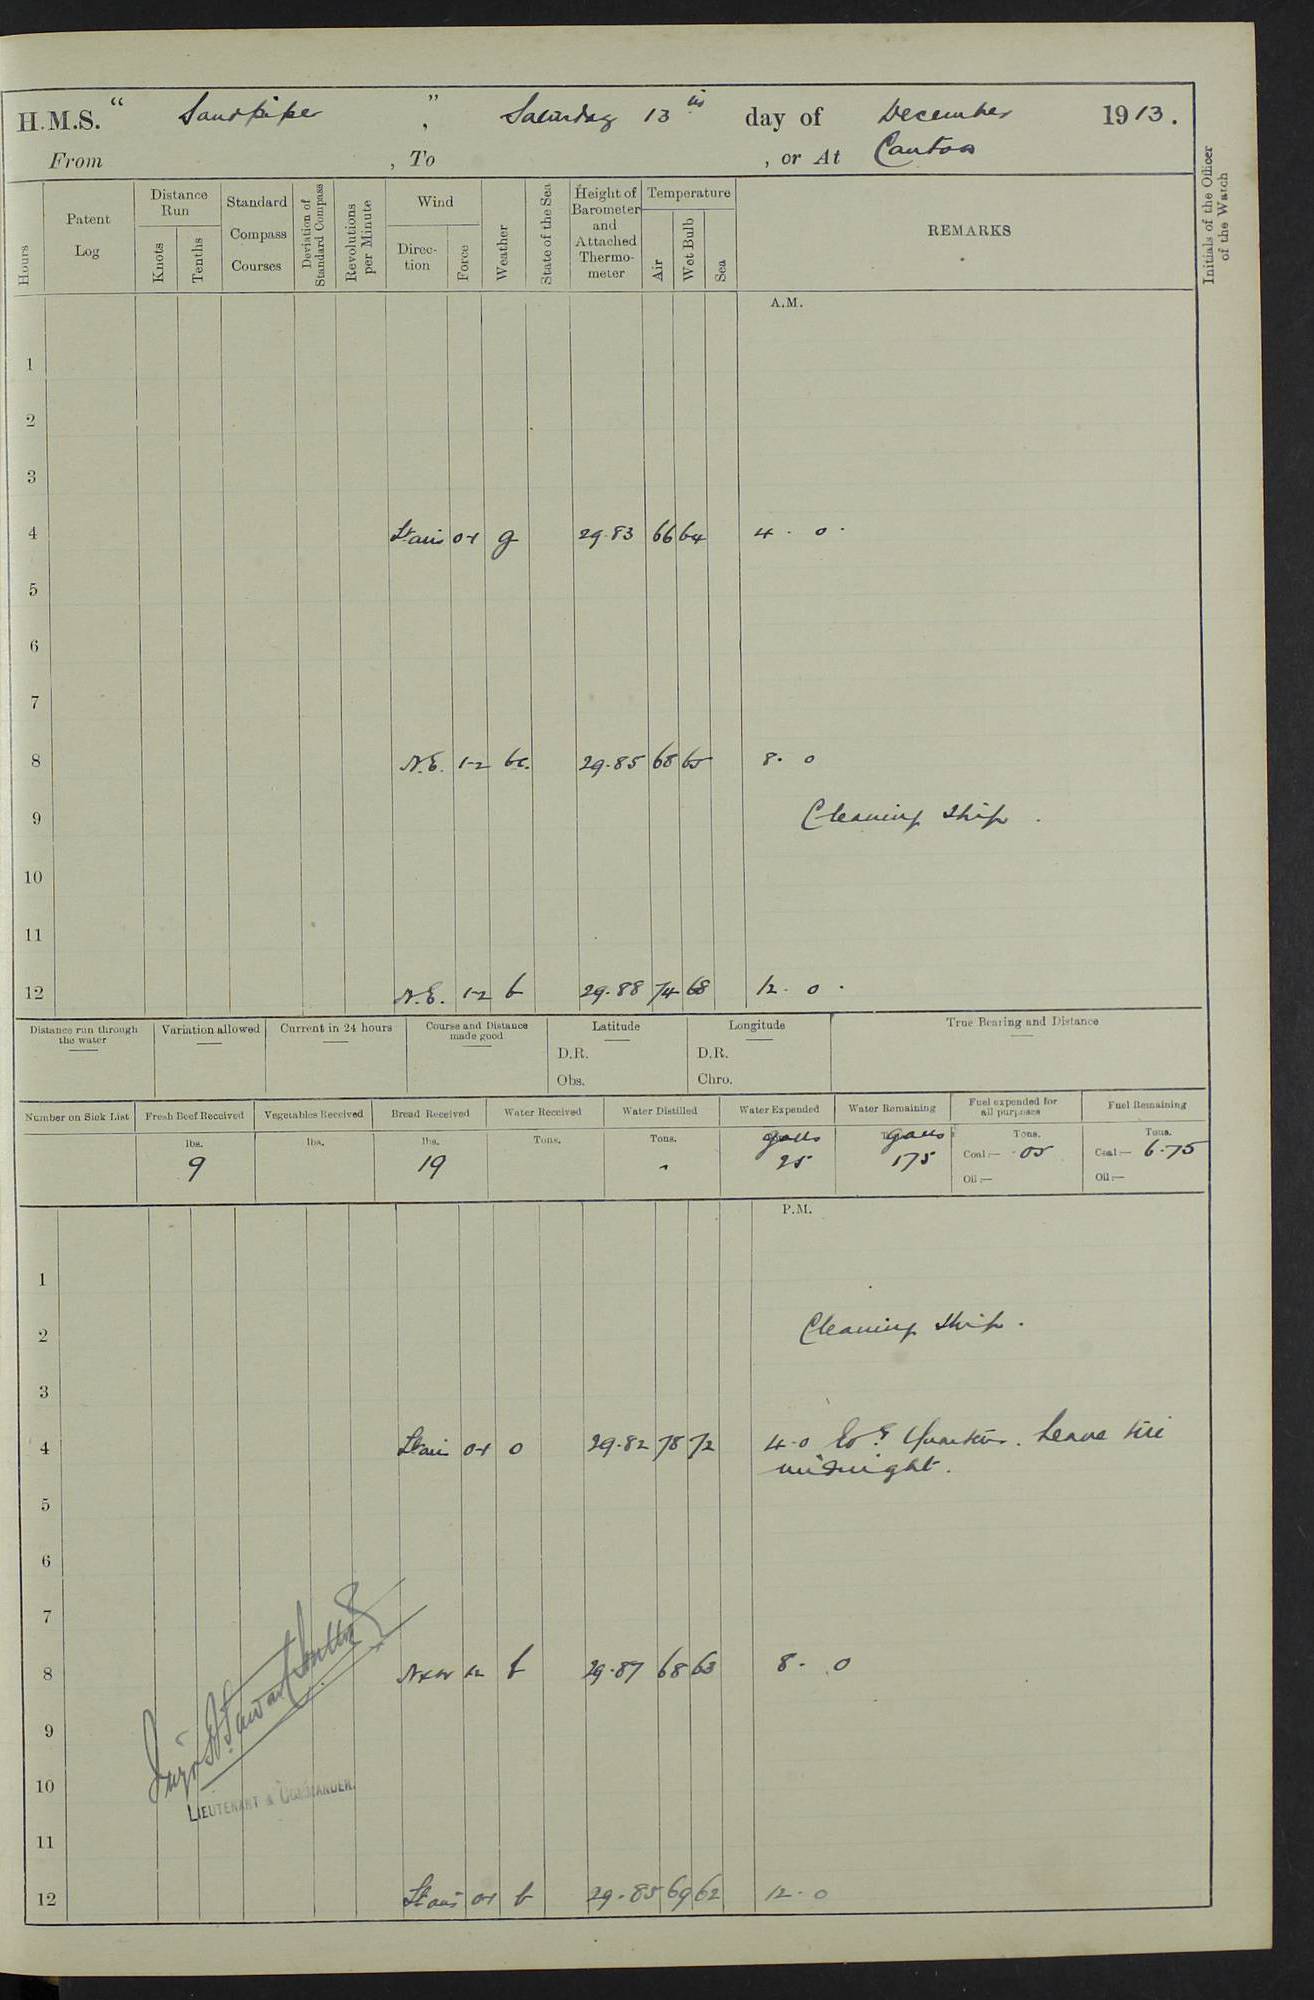 H.M.S. “ Sandpiper ” , Saturday 13th day of December 1913.
From , To , or At Canton
Hours
Patent Log
Distance Run
Knots
Tenths
Standard Compass Courses
Deviation of Standard Compass
Revolutions per Minute
Wind
Direction
Force
Weather
State of the Sea
Height of Barometer and Attached Thermometer
Temperature
Air
Wet Bulb
Sea
REMARKS
Initials of the Officer of the Watch
A.M.
1
2
3
4 Lt airs 0-1 g 29.83 66 64 4. 0.
5
6
7
8 N.E. 1-2 bc. 29.85 68 65 8. 0
9 Cleaning Ship.
10
11
12 N.E. 1-2 b 29.88 74 68 12. 0.
Distance run through the water
Variation allowed
Current in 24 hours
Course and Distance made good
Latitude
D.R.
Obs.
Longitude
D.R.
Chro.
True Bearing and Distance
Number on Sick List
Fresh Beef Received
lbs.
9
Vegetables Received
lbs.
Bread Received
lbs.
19
Water Received
Tons.
Water Distilled
Tons.
Water Expended
galls
25
Water Remaining
galls
175
Fuel expended for all purposes
Tons.
Coal:— .05
Oil:—
Fuel Remaining
Tons.
Coal:— 6.75
Oil:—
P.M.
1
2 Cleaning Ship.
3
4 Lt airs 0-1 o 29.82 78 72 4.0 Evg Quarters. Leave till
midnight.
5
6
7
8 NxW 1-2 b 29.87 68 63 8. 0
9
10
11
12 Lt airs 0-1 b 29.85 69 62 12. 0
LIEUTENANT & COMMANDER.